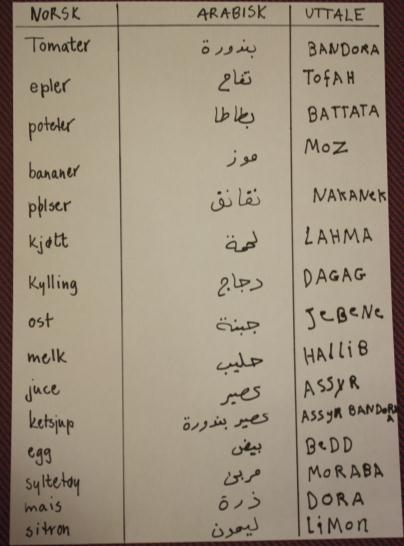 NORSK ARABISK UTTALE
Tomater بندورة BANDORA
epler تفاح TOFAH
poteter بطاطا BATTATA
bananer موز MOZ
pølser نقانق NAKANEK
kjøtt لحمة LAHMA
Kylling دجاج DAGAG
ost جبنة JEBENE
melk حليب HALLIB
juce عصير ASSYR
ketsjup عصير بندورة ASSYR BANDORA
egg بيض BEDD
syltetøy مربى MORABA
mais ذرة DORA
sitron ليمون LIMON